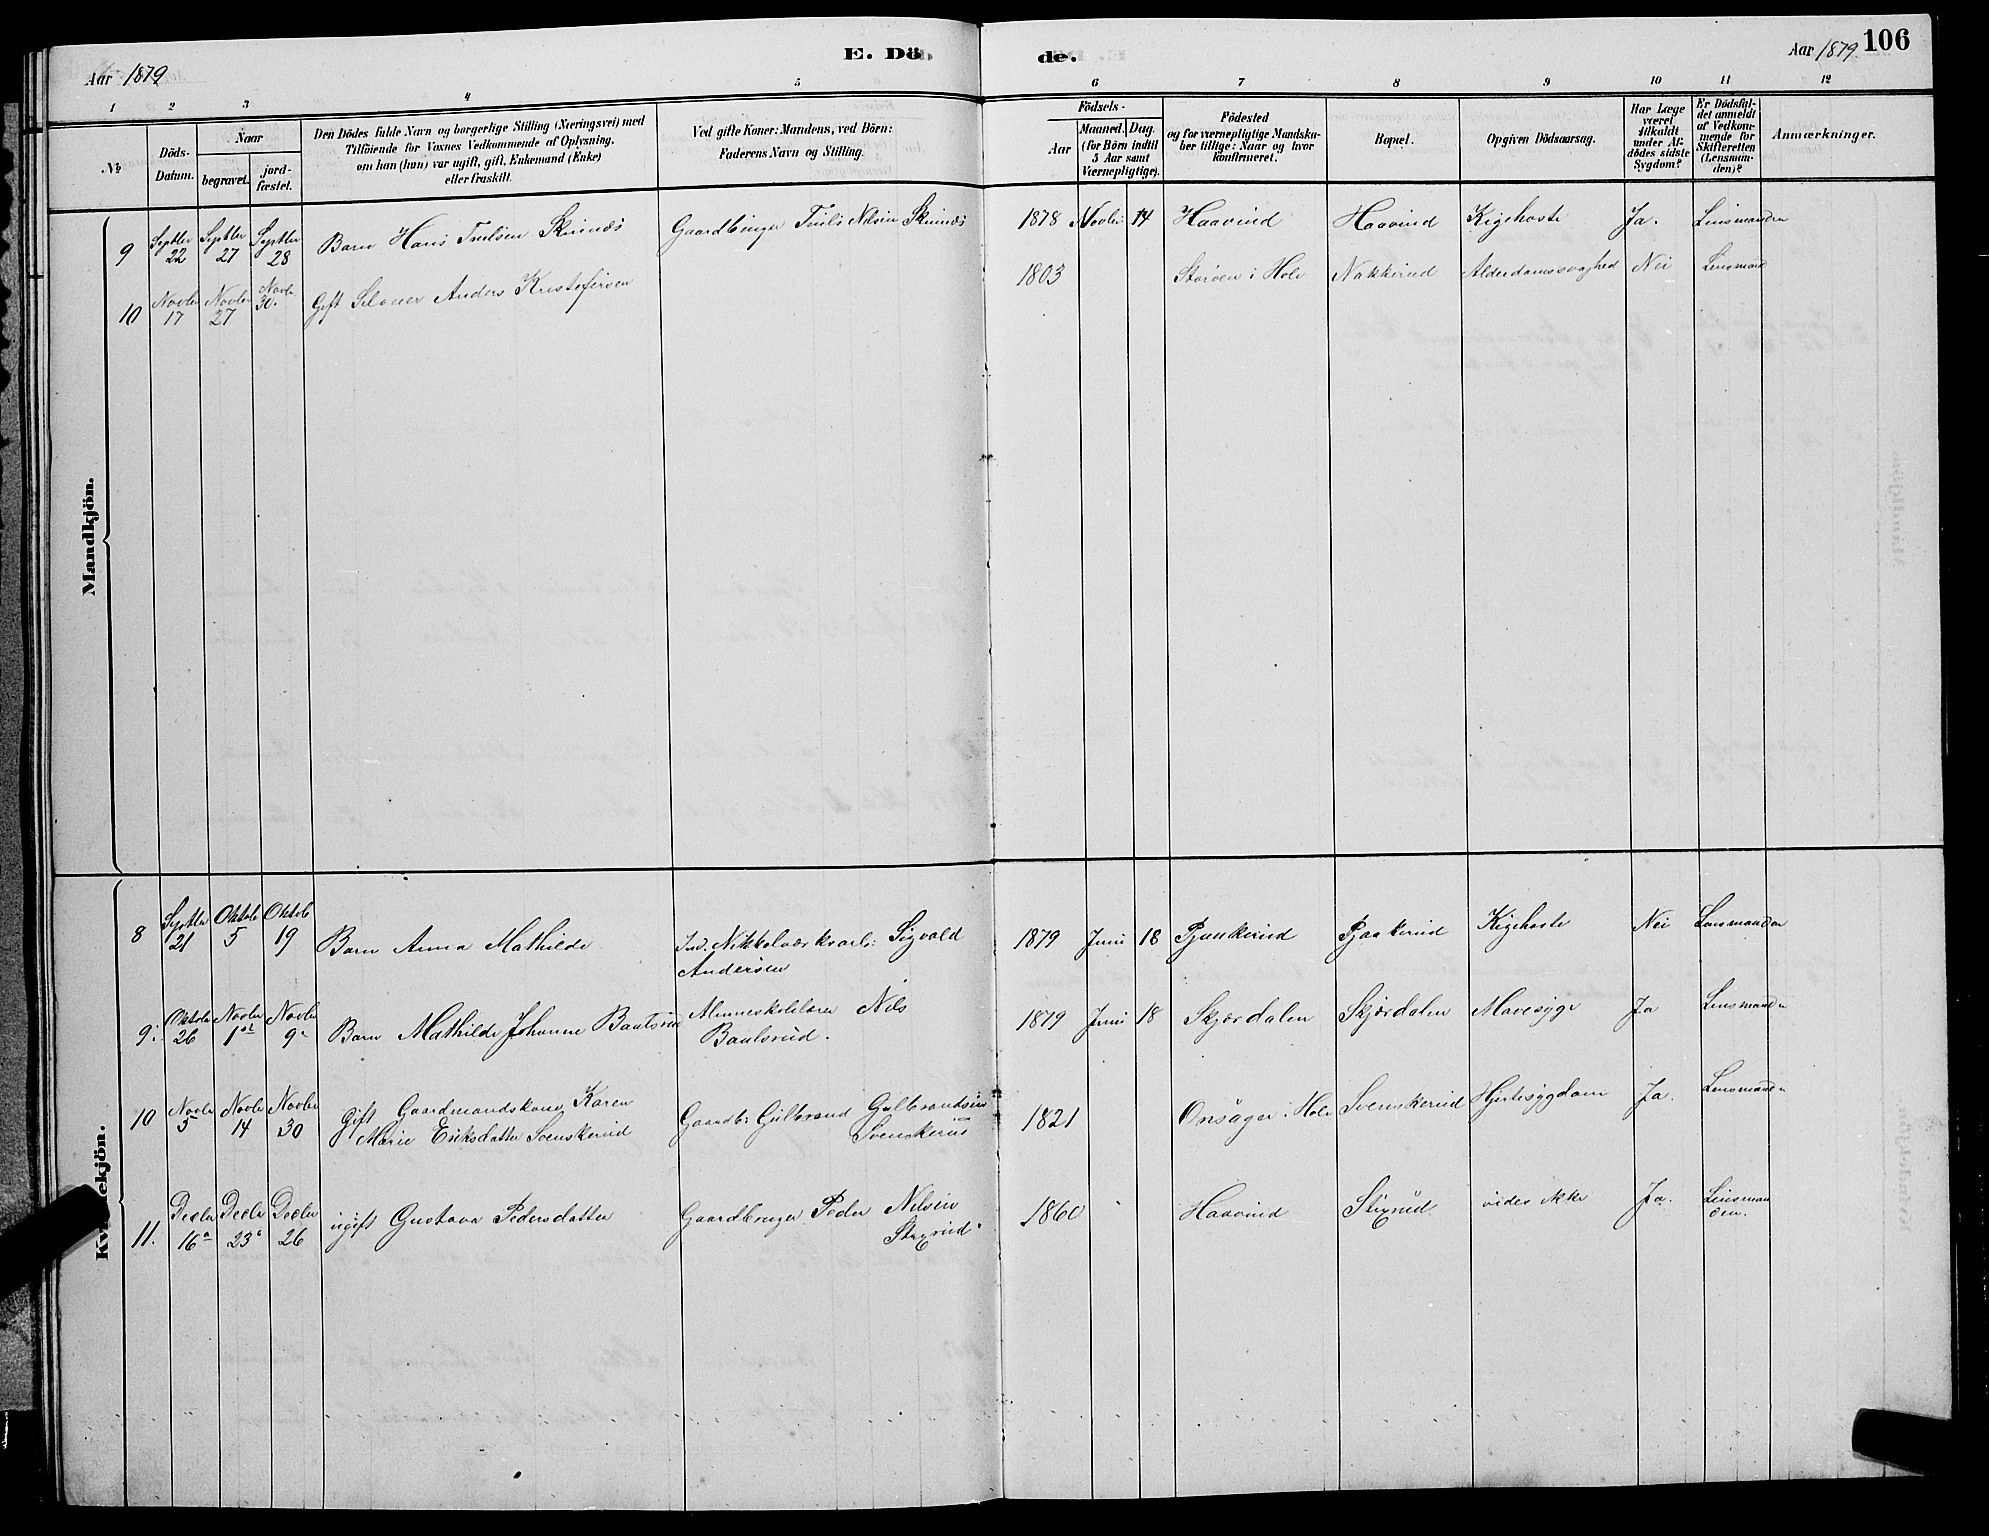 E. Dö
de.
106
Aar 1879
Aar 1879.
1 2 3 4 5 6 7 8 9 10 11 12
№
Döds-
Datum.
Naar
begravet.
jord-
fæstet.
Den Dödes fulde Navn og borgerlige Stilling (Næringsvei) med
Tilföiende for Voxnes Vedkommende af Oplysning,
om han (hun) var ugift, gift, Enkemand (Enke)
eller fraskilt.
Ved gifte Koner: Mandens, ved Börn:
Faderens Navn og Stilling.
Födsels-
Aar
Maaned. Dag.
(for Börn indtil
5 Aar samt
Værnepligtige).
Födested
og for værnepligtige Mandska-
ber tillige: Naar og hvor
konfirmeret.
Bopæl.
Opgiven Dödsaarsag.
Har Læge
været
tilkaldt
under Af-
dødes sidste
Sygdom?
Er Dödsfal-
det anmeldt
af Vedkom-
mende for
Skifteretten
(Lensman-
den)?
Anmærkninger.
Mandkjön.
9 Septbr 22 Septbr 27 Septbr 28 Barn Hans Trulsen Gaardbruger Truls Nilsen 1878 Novbr: 14 Haavind Haavind Kighoste Ja. Lensmanden
10 Novbr 17 Novbr 27 Novbr 30. Gift Anders Kristofersen 1803 Storøen i Hole Nakkerud Alderdomssvaghed Nei Lensmand
8 Septbr 21 Oktob 5 Oktob 19 Barn Anna Mathilde Ind. Nikkelværksarb: Sigvald 1879 Juni 18 Pjaakerud Pjaakerud Kighoste Nei Lensmanden
Andersen
9. Oktobr 26 Novbr 1st Novbr 9. Barn Mathilde Johanne Baalsrud Nils 1879 Juni 18 Skjærdalen Skjørdalen Mavesyge Ja Lensmanden
Baalsrud.
10 Novbr 5 Novbr 14 Novbr 30 Gift Gaardmandskone Karen Gaardb: Gulbrand Gulbrandsen 1821 Onsager i Hole Svenskerud Hjertesygdom Ja. Lensmanden
Marie Eriksdatter Svenskerud Svenskerud
11. Decbr 16 Decbr 23 Decbr 26 ugift Gustava Pedersdatter Gaardbruger Peder Nilsen 1860 Haavind Stixrud vides ikke Ja. Lensman
Stixrud den.